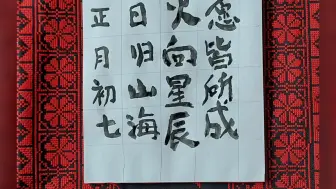 愿皆所成
火向星辰
日归山海
正月初七